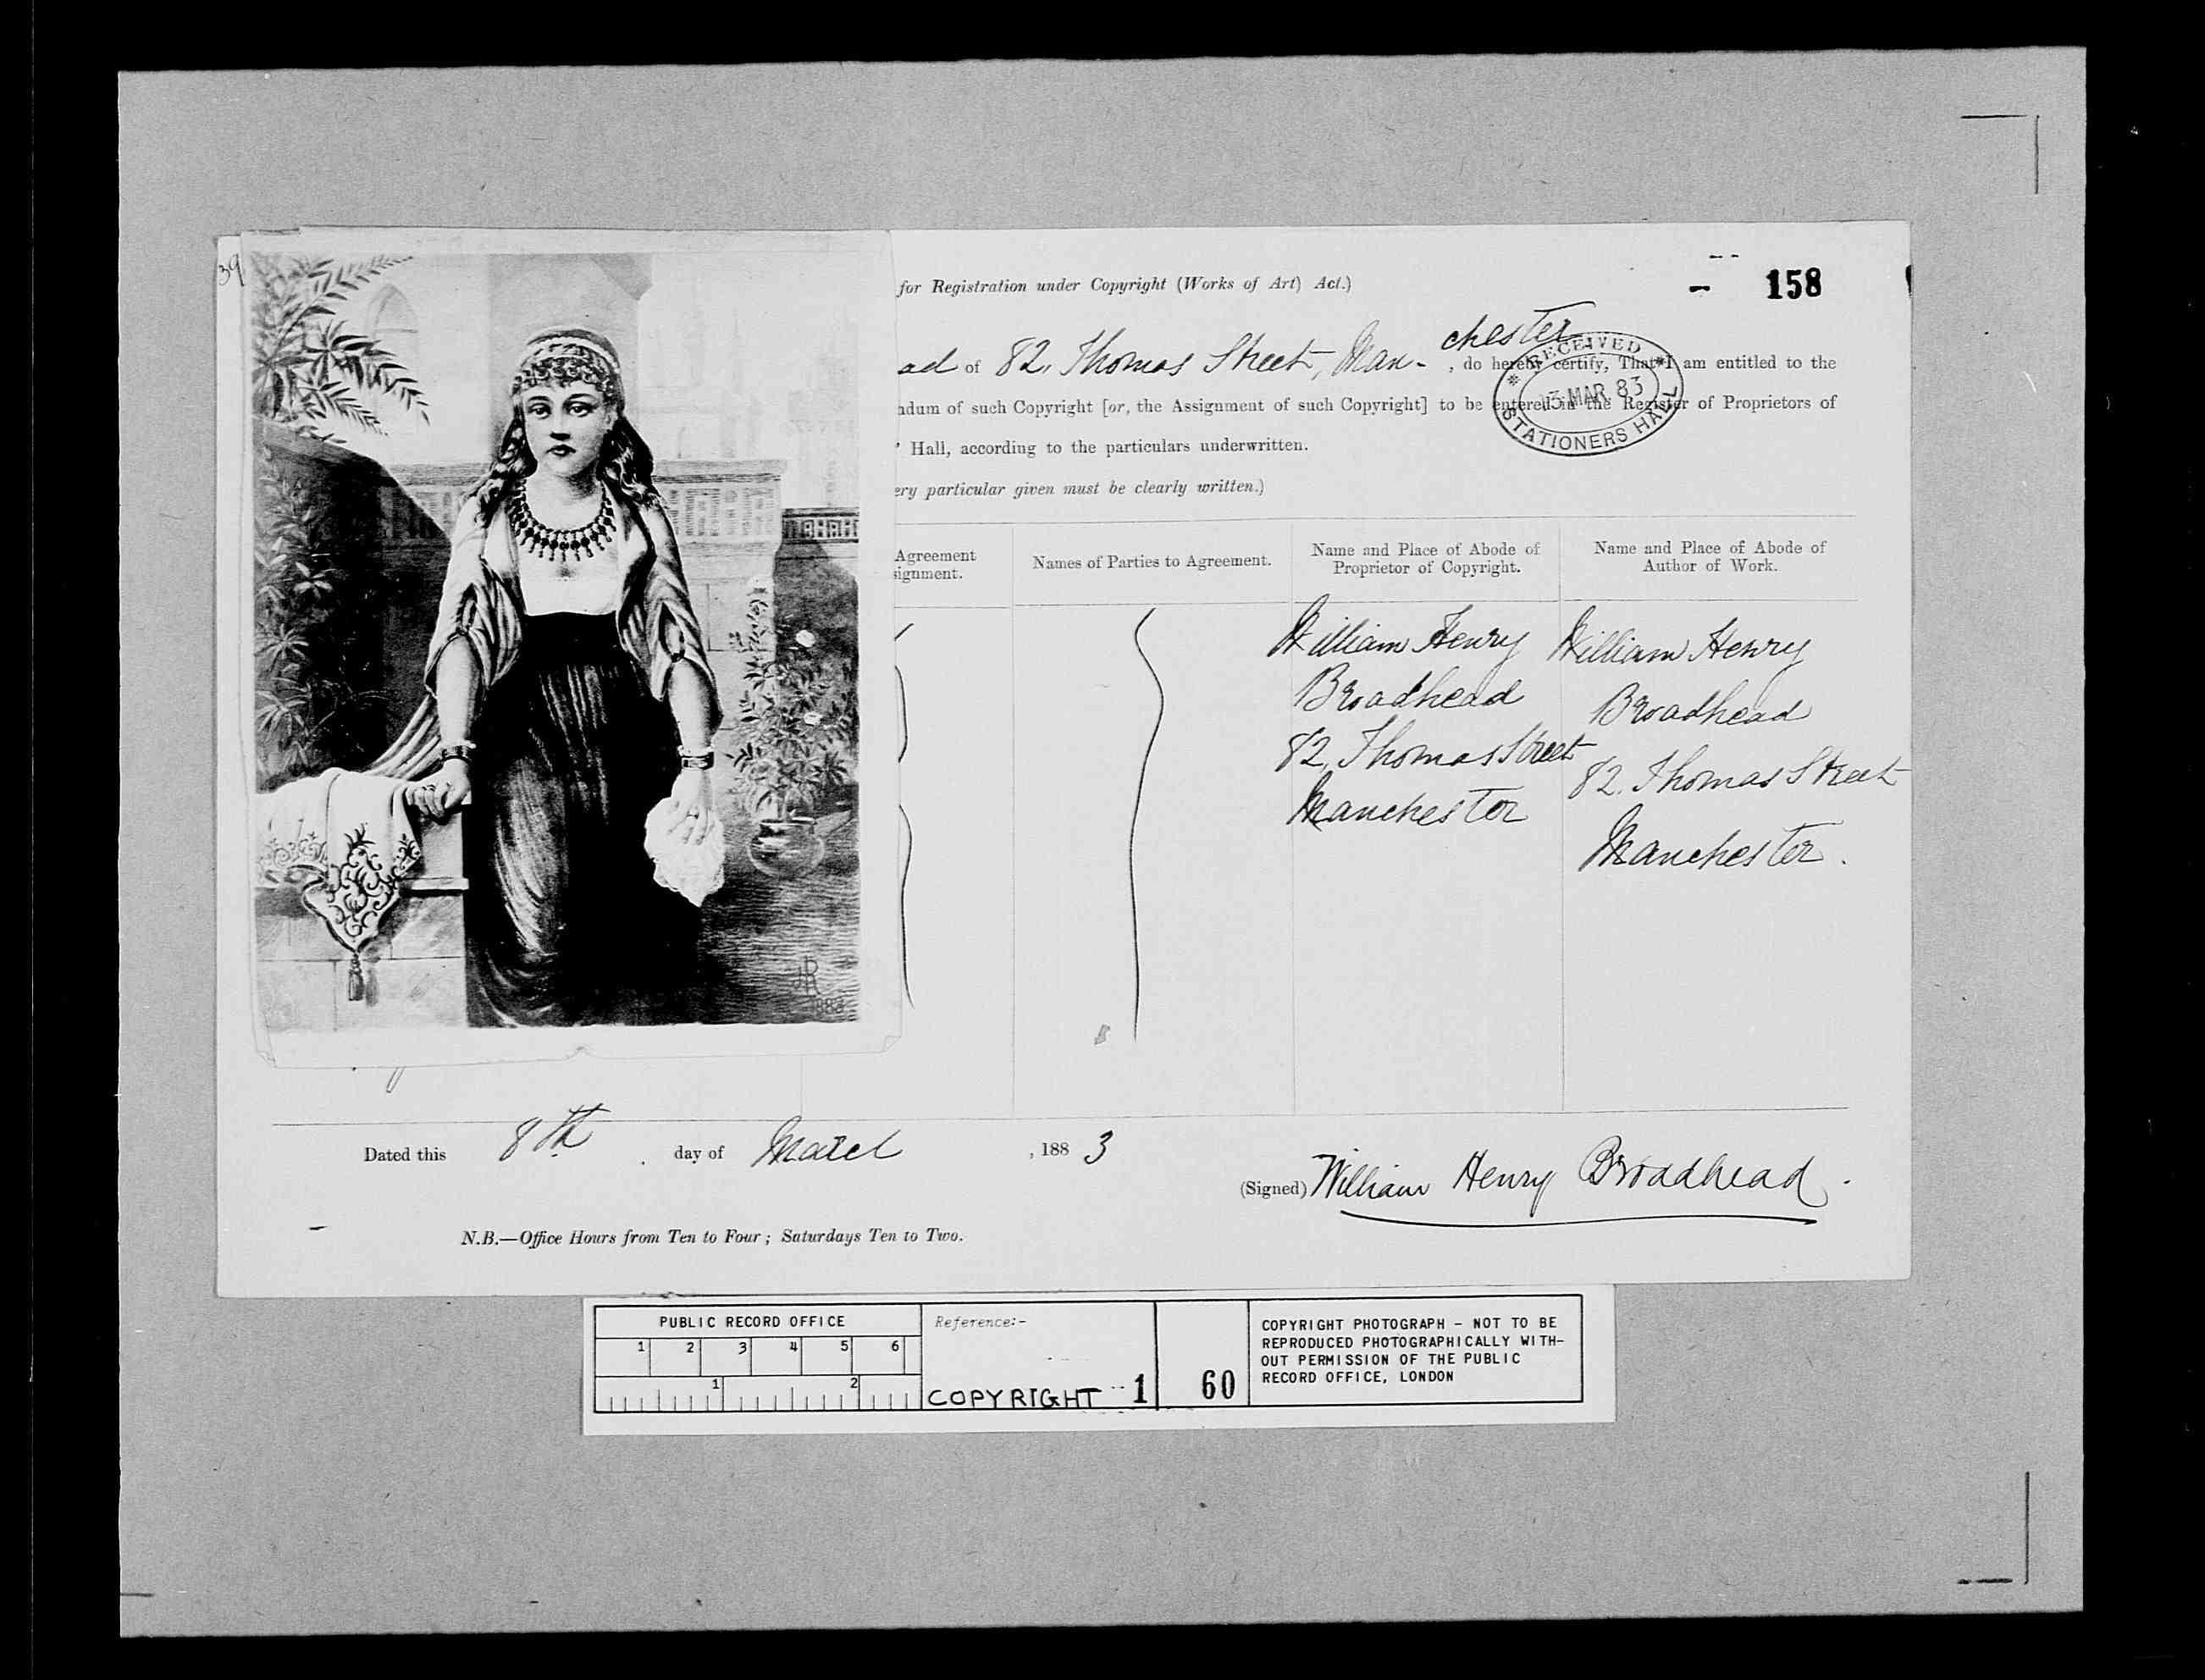 39
for Registration under Copyright (Works of Art) Act.)
158
ad of 82, Thomas Street, Man-chester, do hereby certify, That I am entitled to the
ndum of such Copyright [or, the Assignment of such Copyright] to be entered in the Register of Proprietors of
' Hall, according to the particulars underwritten.
ery particular given must be clearly written.)
RECEIVED
MAR 83
STATIONERS HALL
Agreement
signment.
Names of Parties to Agreement.
Name and Place of Abode of
Proprietor of Copyright.
Name and Place of Abode of
Author of Work.
William Henry
Broadhead
82, Thomas Street
Manchester
William Henry
Broadhead
82. Thomas Street
Manchester.
1883
Dated this 8th day of March, 1883
(Signed) William Henry Broadhead.
N.B.—Office Hours from Ten to Four; Saturdays Ten to Two.
PUBLIC RECORD OFFICE
1 2 3 4 5 6
1 2
Reference:-
COPYRIGHT 1 60
COPYRIGHT PHOTOGRAPH - NOT TO BE
REPRODUCED PHOTOGRAPHICALLY WITH-
OUT PERMISSION OF THE PUBLIC
RECORD OFFICE, LONDON